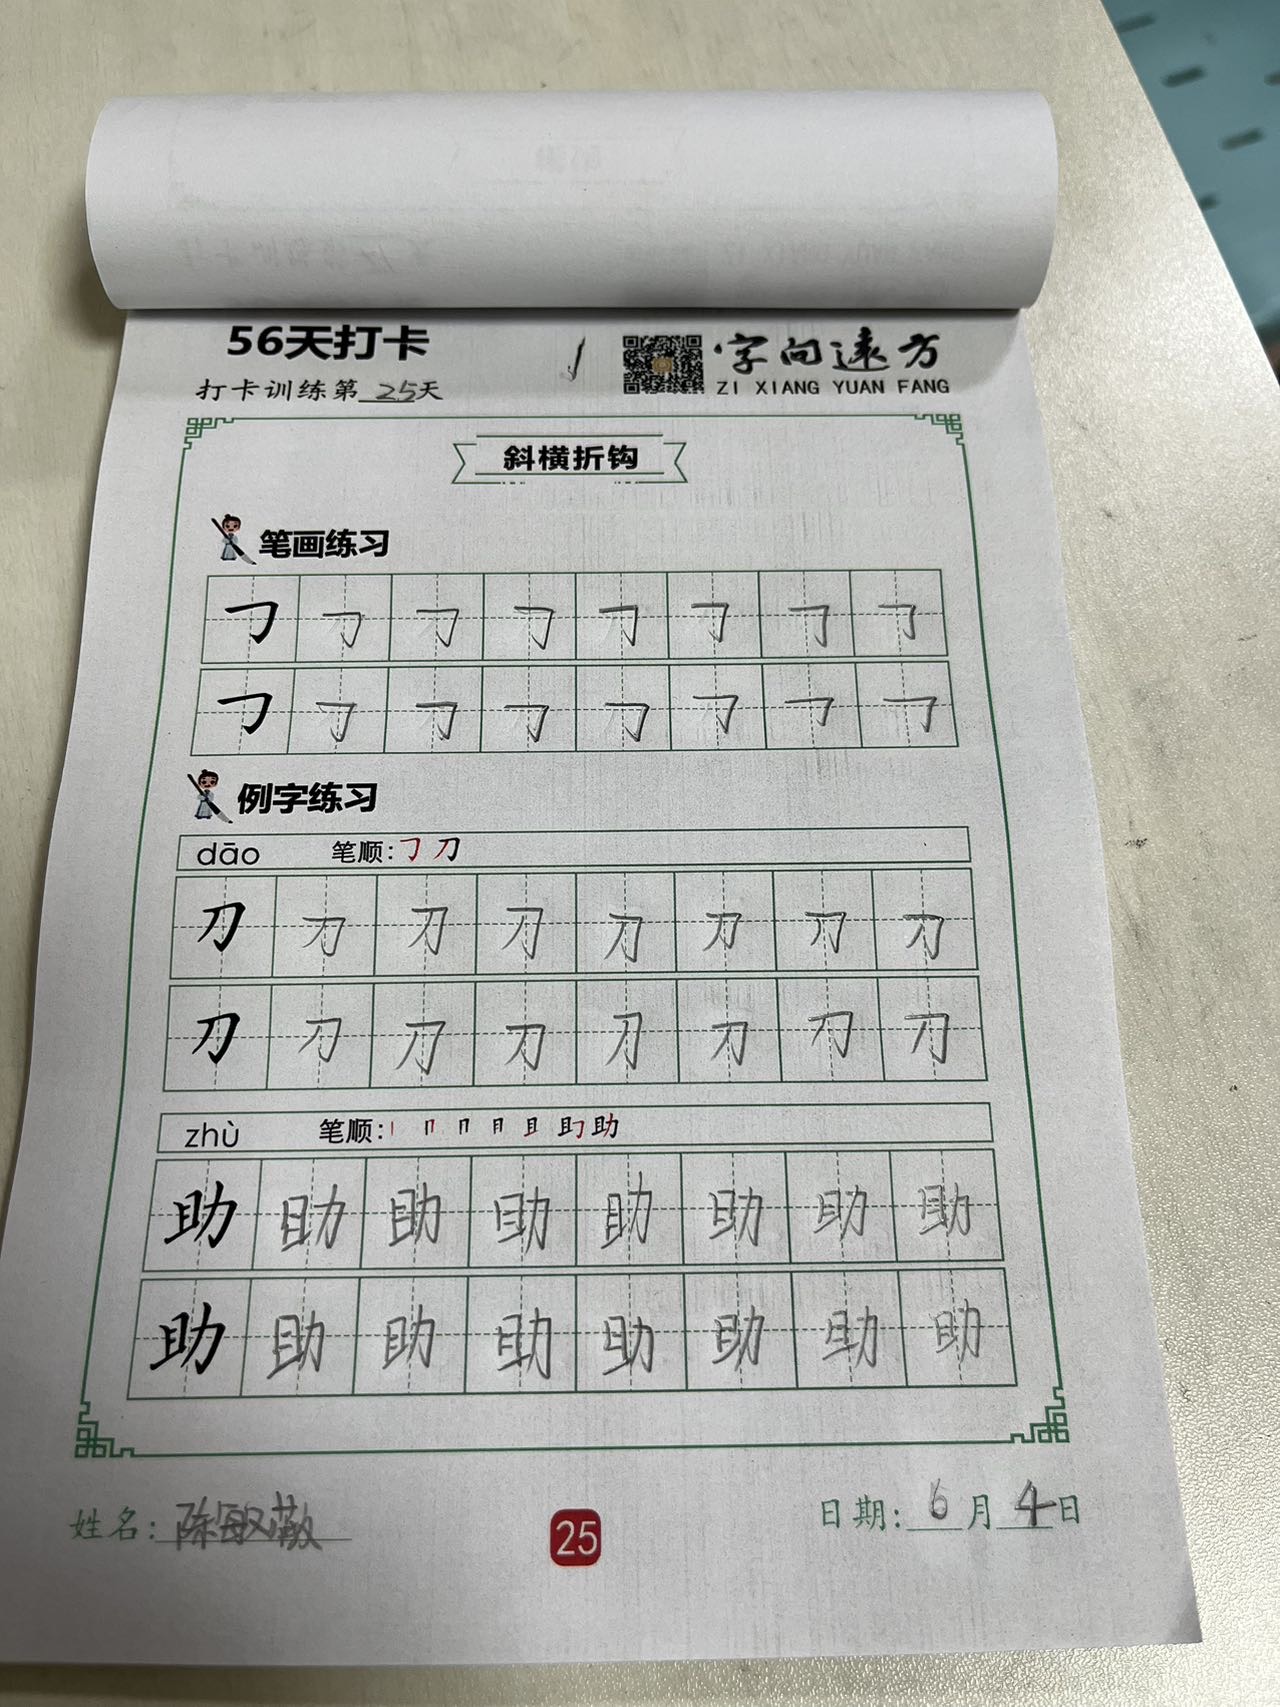 56天打卡
打卡训练第25天
字向远方
ZI XIANG YUAN FANG
斜横折钩
笔画练习
𠃌 𠃌 𠃌 𠃌 𠃌 𠃌 𠃌 𠃌
𠃌 𠃌 𠃌 𠃌 𠃌 𠃌 𠃌 𠃌
例字练习
dāo 笔顺:𠃌 刀
刀 刀 刀 刀 刀 刀 刀 刀
刀 刀 刀 刀 刀 刀 刀 刀
zhù 笔顺:丨 冂 冃 月 且 助 助
助 助 助 助 助 助 助 助
助 助 助 助 助 助 助 助
姓名:陈敏
25
日期:6月4日